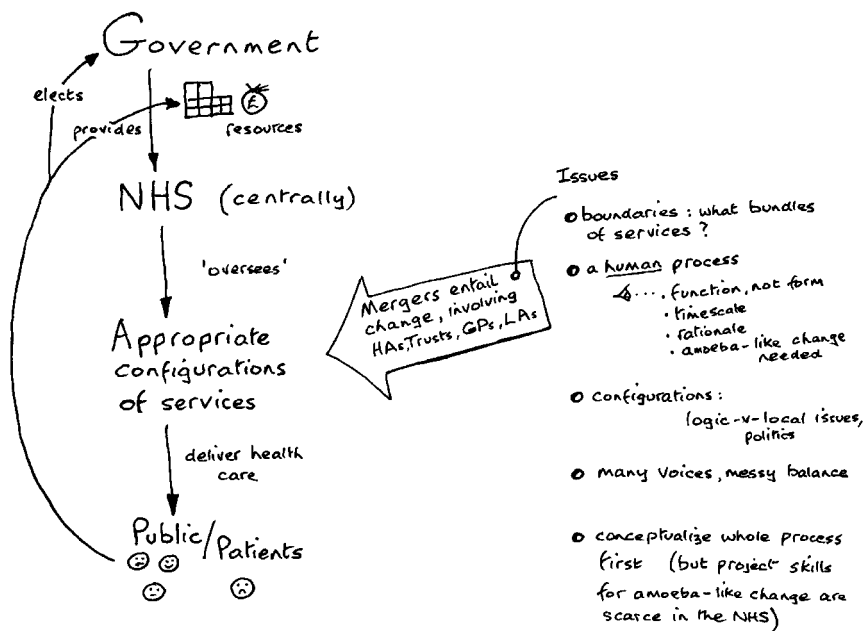 Government
elects
provides
£
resources
NHS (centrally)
'oversees'
Appropriate
configurations
of services
deliver health
care
Public/Patients
Mergers entail
change, involving
HAs, Trusts, GPs, LAs
Issues
boundaries : what bundles
of services ?
a human process
function, not form
timescale
rationale
amoeba-like change
needed
configurations :
logic-v-local issues,
politics
many voices, messy balance
conceptualize whole process
first (but project skills
for amoeba-like change are
scarce in the NHS)